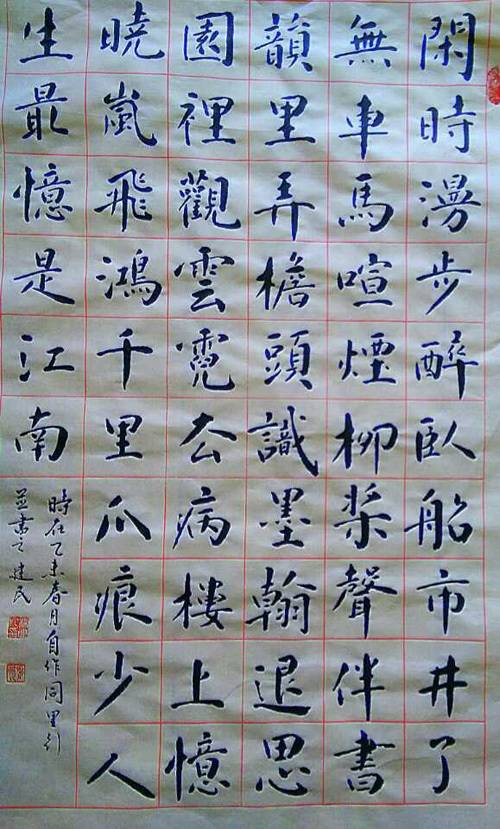 閑時漫步醉臥船市井了
無車馬喧煙柳槳聲伴書
韻里弄檐頭識墨翰退思
園裡觀雲霓去病樓上憶
曉嵐飛鴻千里爪痕少人
生最憶是江南
時在乙未春月自作同里行
並書之建民